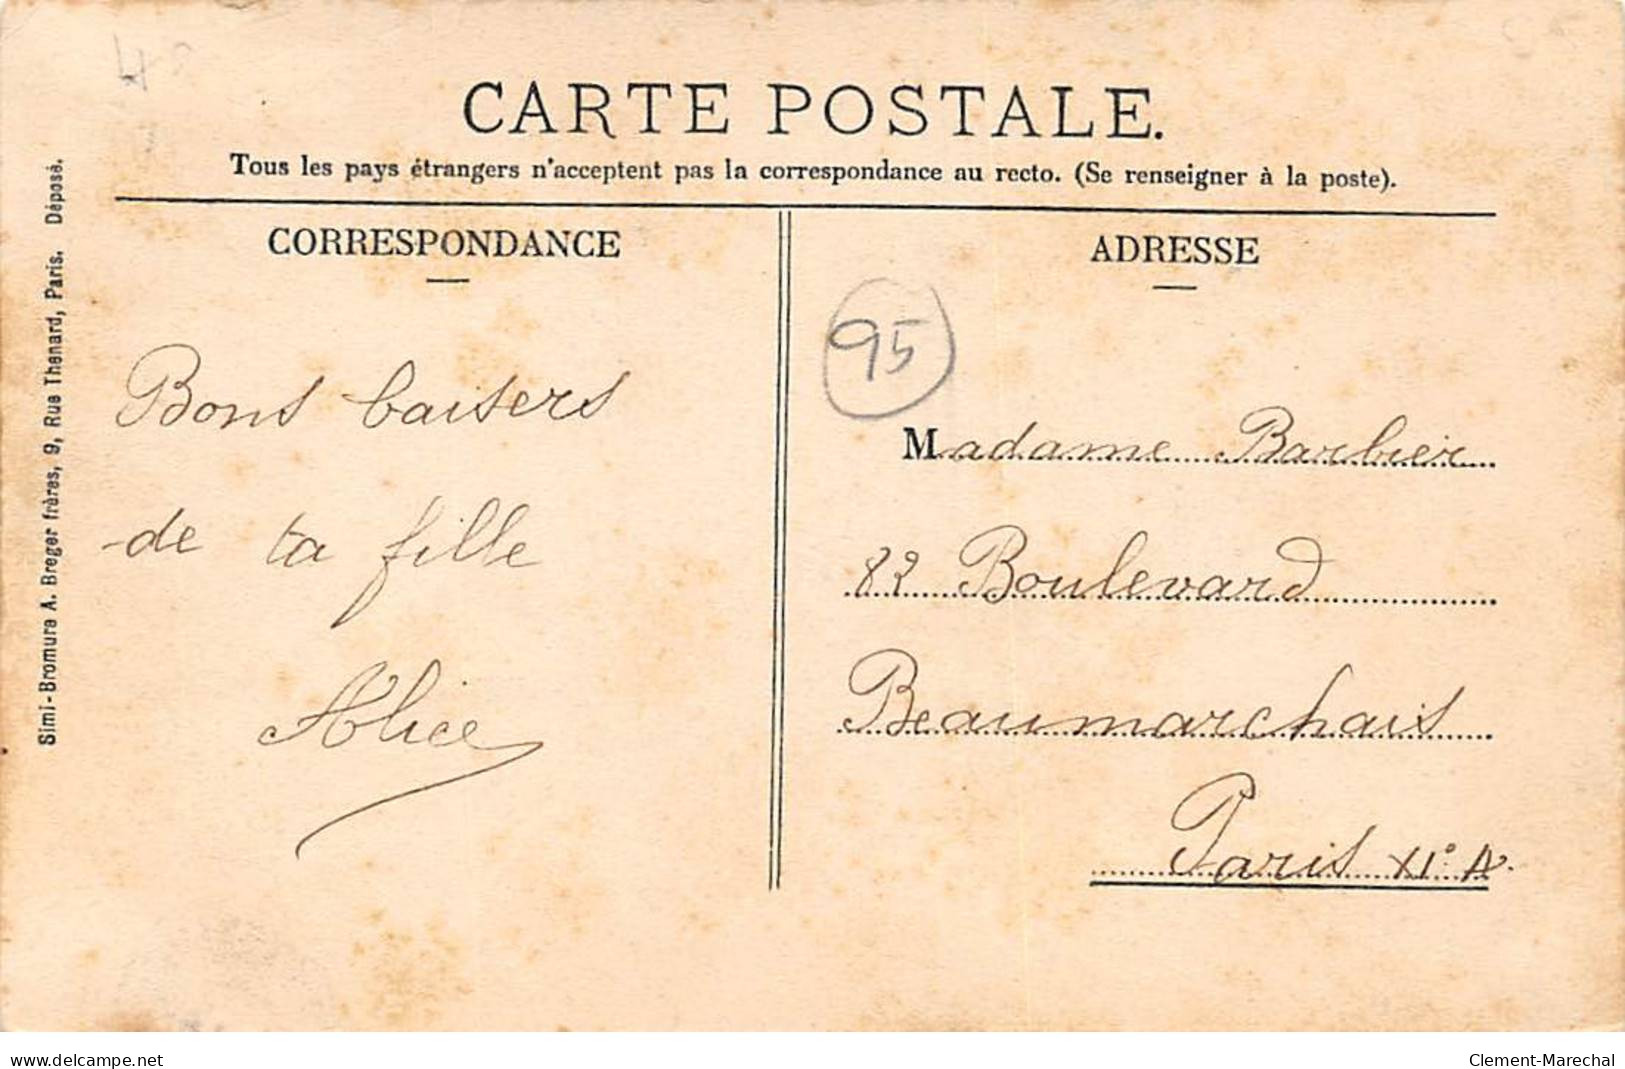 CARTE POSTALE.
Tous les pays étrangers n'acceptent pas la correspondance au recto. (Se renseigner à la poste).
Simi-Bromure A. Breger frères, 9, Rue Thenard, Paris. Déposé.
CORRESPONDANCE
Bons baisers
de ta fille
Alice
ADRESSE
95
Madame Barbier
82 Boulevard
Beaumarchais
Paris XIº A.
www.delcampe.net
Clement-Marechal